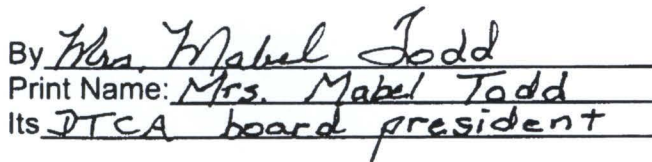 By Mrs. Mabel Todd
Print Name: Mrs. Mabel Todd
Its DTCA board president